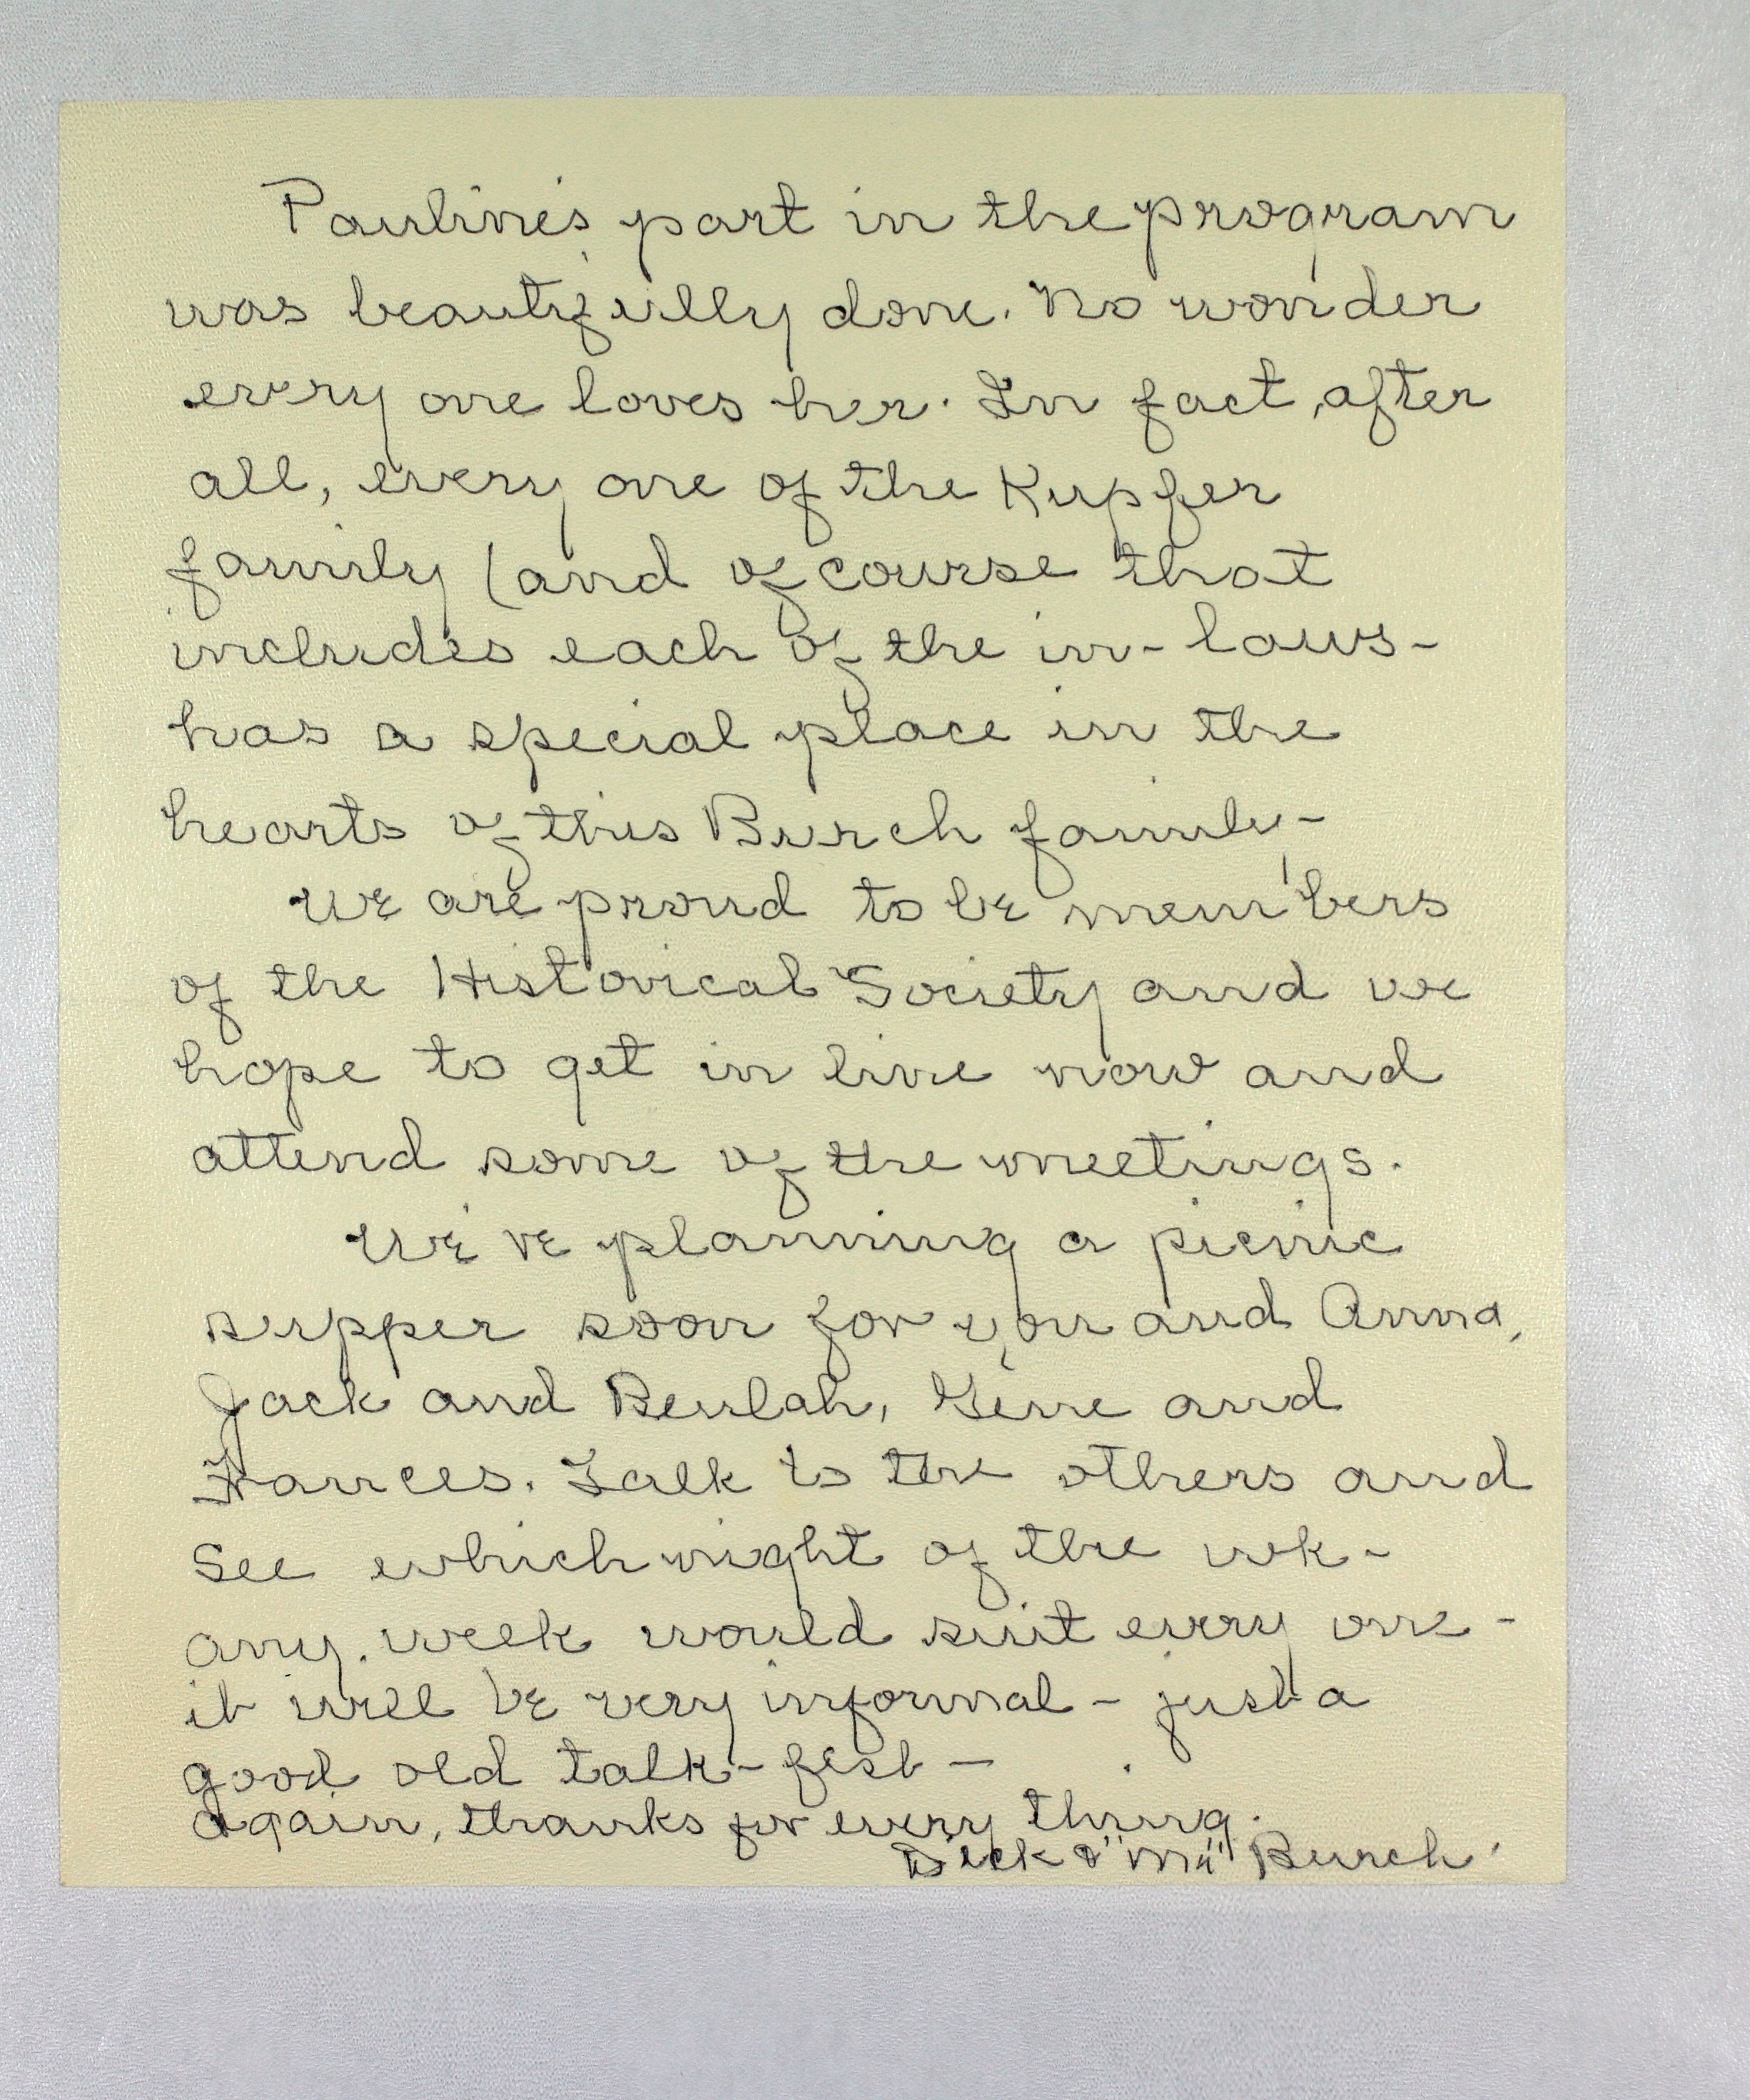 Pauline's part in the program
was beautifully done. No wonder
every one loves her. In fact, after
all, every one of the Kupfer
family (and of course that
includes each of the in-laws-
has a special place in the
hearts of this Burch family-
We are proud to be members
of the Historical Society and we
hope to get in line now and
attend some of the meetings.
We're planning a picnic
supper soon for you and Anna,
Jack and Beulah, Gene and
Frances. Talk to the others and
see which night of the wk-
any week would suit every one-
it will be very informal - just a
good old talk-fest -
Again, thanks for every thing.
Dick & "Mi" Burch